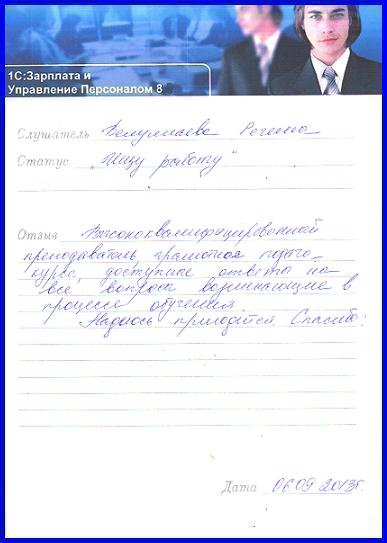 1С:Зарплата и
Управление Персоналом 8
Слушатель
Статус "Ищу работу"
Отзыв Высококвалифицированный
преподаватель, грамотное
курса, доступные ответы на
все вопросы возникающие в
процессе обучения.
Надеюсь пригодится. Спасибо!
Дата 06.09.2013г.